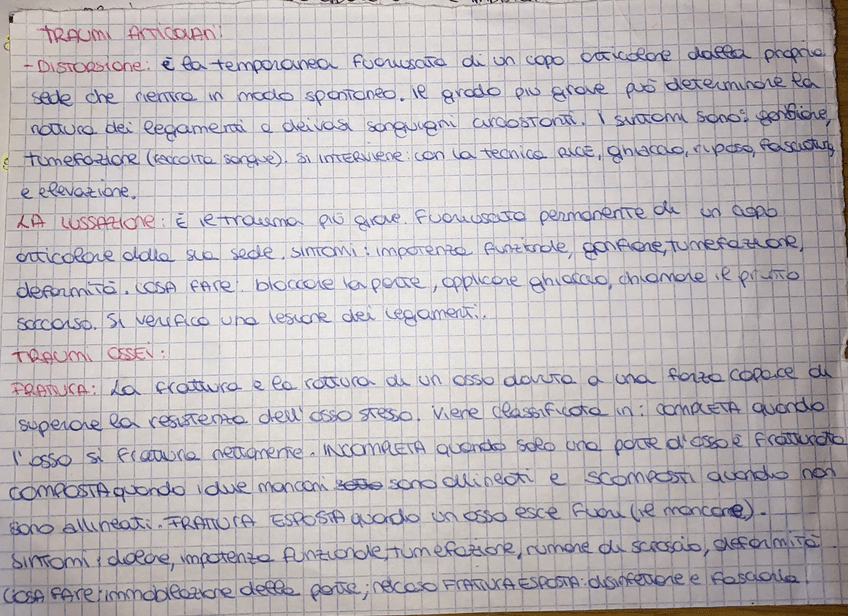 TRAUMI ARTICOLARI:
-DISTORSIONE: È la temporanea fuoriuscita di un capo articolare dalla propria
sede che rientra in modo spontaneo. Il grado più grave può determinare la
rottura dei legamenti e dei vasi sanguigni circostanti. I sintomi sono: gonfiore,
tumefazione (raccolta sangue). SI INTERVIENE: con la tecnica RICE, ghiaccio, riposo, fasciatura
e elevazione.
LA LUSSAZIONE: È il trauma più grave. Fuoriuscita permanente di un capo
articolare dalla sua sede. Sintomi: impotenza funzionale, gonfiore, tumefazione,
deformità. COSA FARE: bloccare la parte, applicare ghiaccio, chiamare il pronto
soccorso. Si verifica una lesione dei legamenti.
TRAUMI OSSEI:
FRATTURA: La frattura è la rottura di un osso dovuta a una forza capace di
superare la resistenza dell'osso stesso. Viene classificata in: COMPLETA quando
l'osso si frattura nettamente. INCOMPLETA quando solo una parte d'osso è fratturata
COMPOSTA quando i due monconi sono allineati e scomposti quando non
sono allineati. FRATTURA ESPOSTA quando un osso esce fuori (il moncone).
Sintomi: dolore, impotenza funzionale, tumefazione, rumore di scroscio, deformità.
COSA FARE: immobilizzazione della parte; nel caso FRATTURA ESPOSTA: disinfezione e fasciarla.